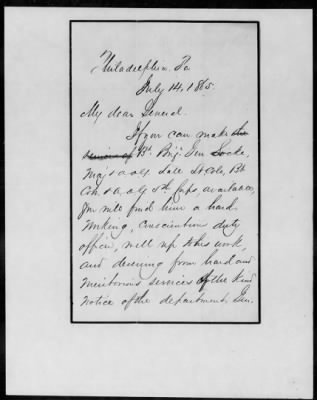 Philadelphia Pa
July 14, 1865.
My dear General.
If you can make the
Bt. Brig. Gen Locke,
Maj & a. a. G. late Lt Col, Bt
Col & a. a. G. 5th Corps, available,
you will find him a hard
working, conscientious duty
officer, well up to his work,
and deserving from hard and
meritorious services of the kind
notice of the department, Gen.